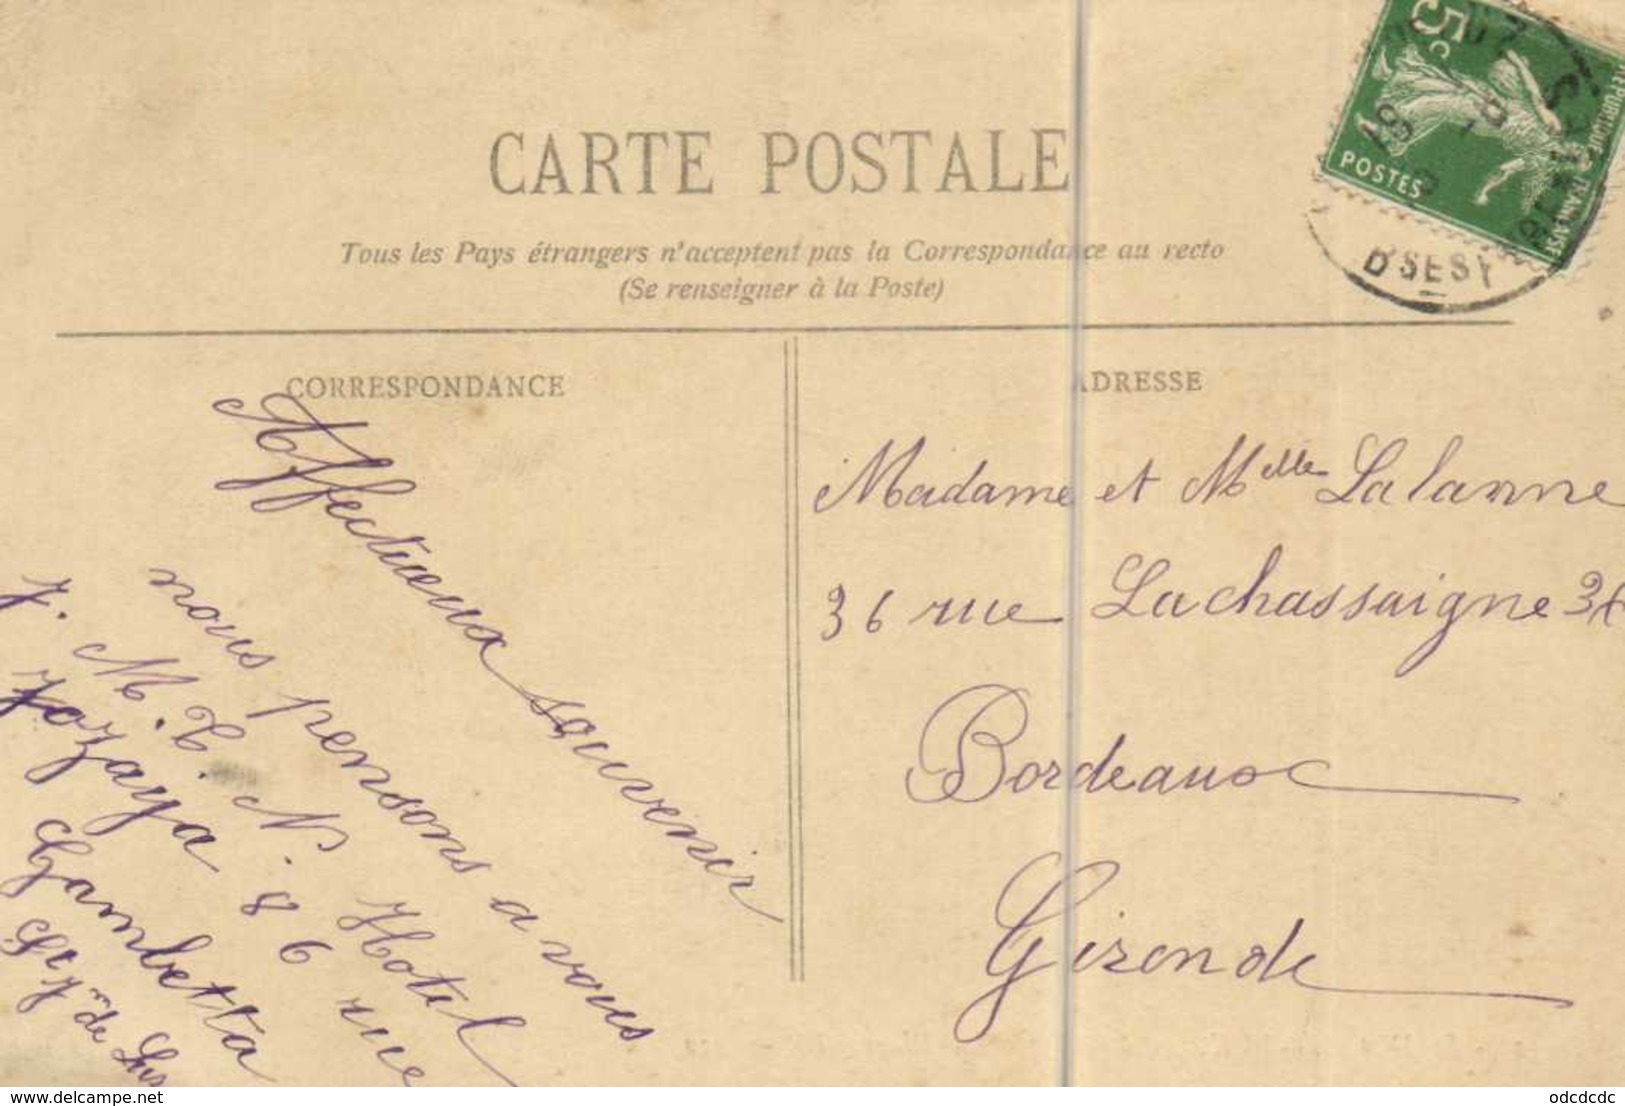 CARTE POSTALE
Tous les Pays étrangers n'acceptent pas la Correspondance au recto
(Se renseigner à la Poste)
CORRESPONDANCE
ADRESSE
5c
POSTES
Affectueux souvenir
nous pensons a vous
J. M. C. N. Hotel
Jozaya 86 rue
Gambetta
St Jn de Lus
Madame et Melle Lalanne
36 rue Lachassaigne 36
Bordeaux
Gironde
www.delcampe.net
odcdcdc